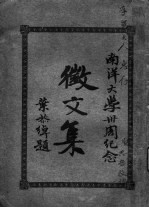 南洋大學卅周紀念
徵文集
葉恭綽題